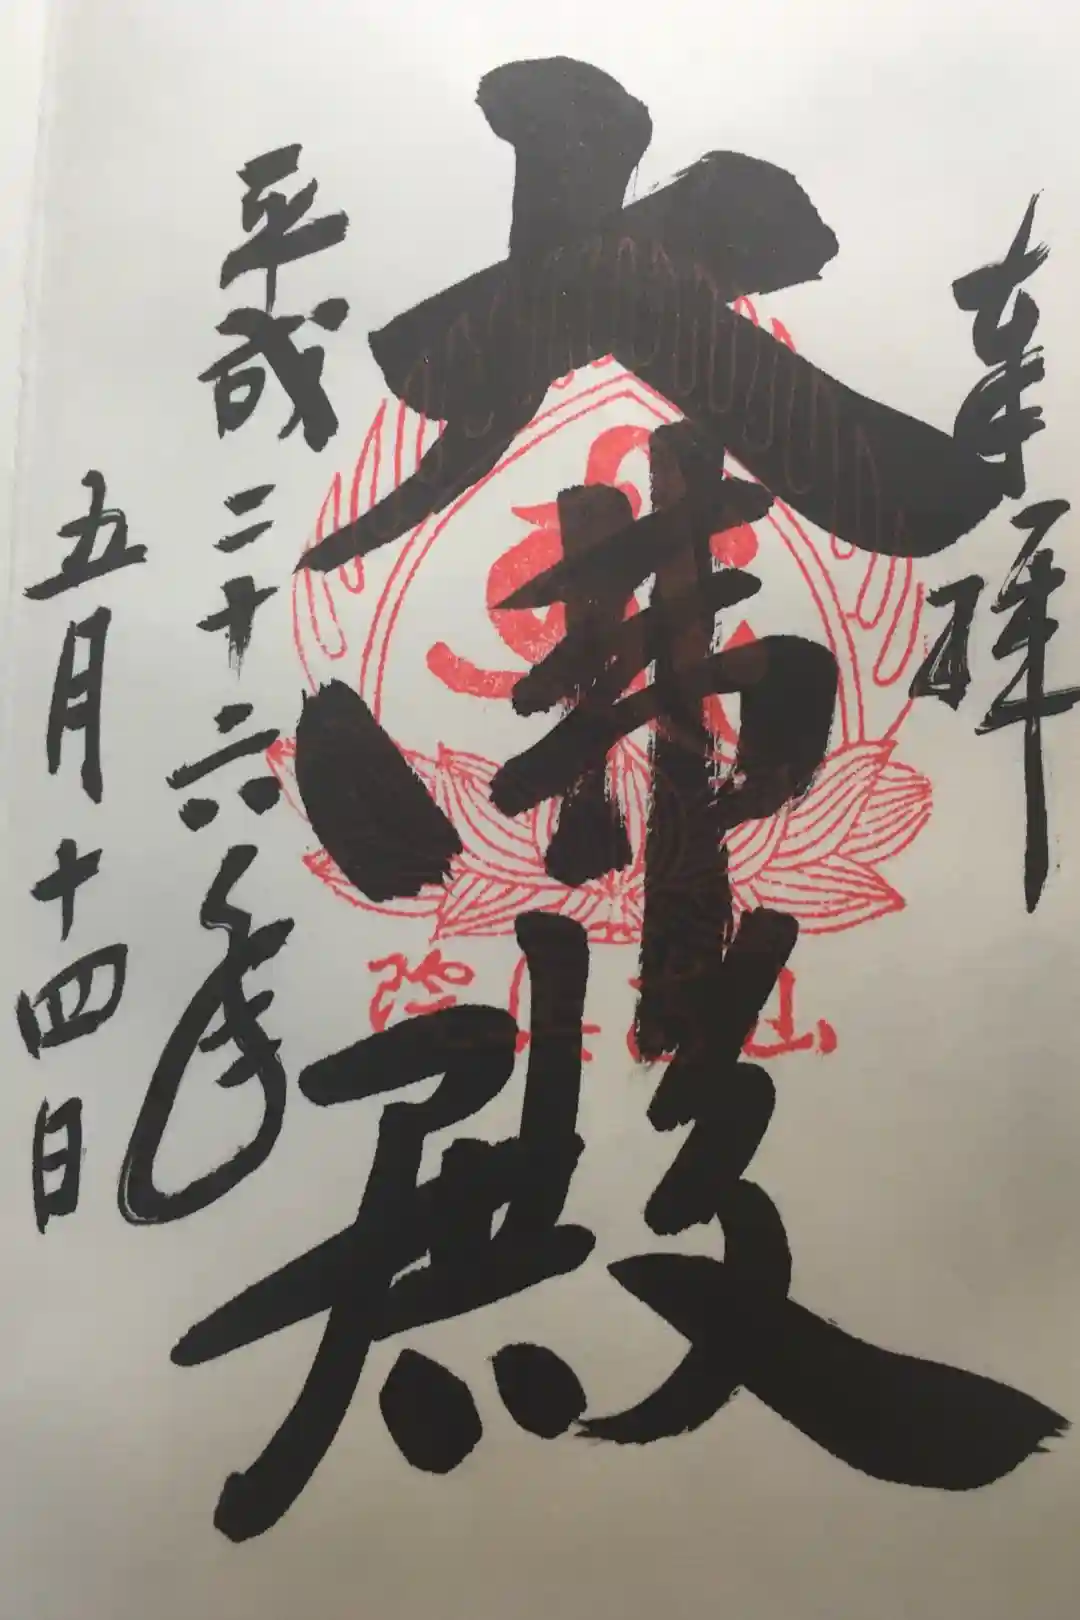 奉拝
大佛殿
平成二十六年
五月十四日